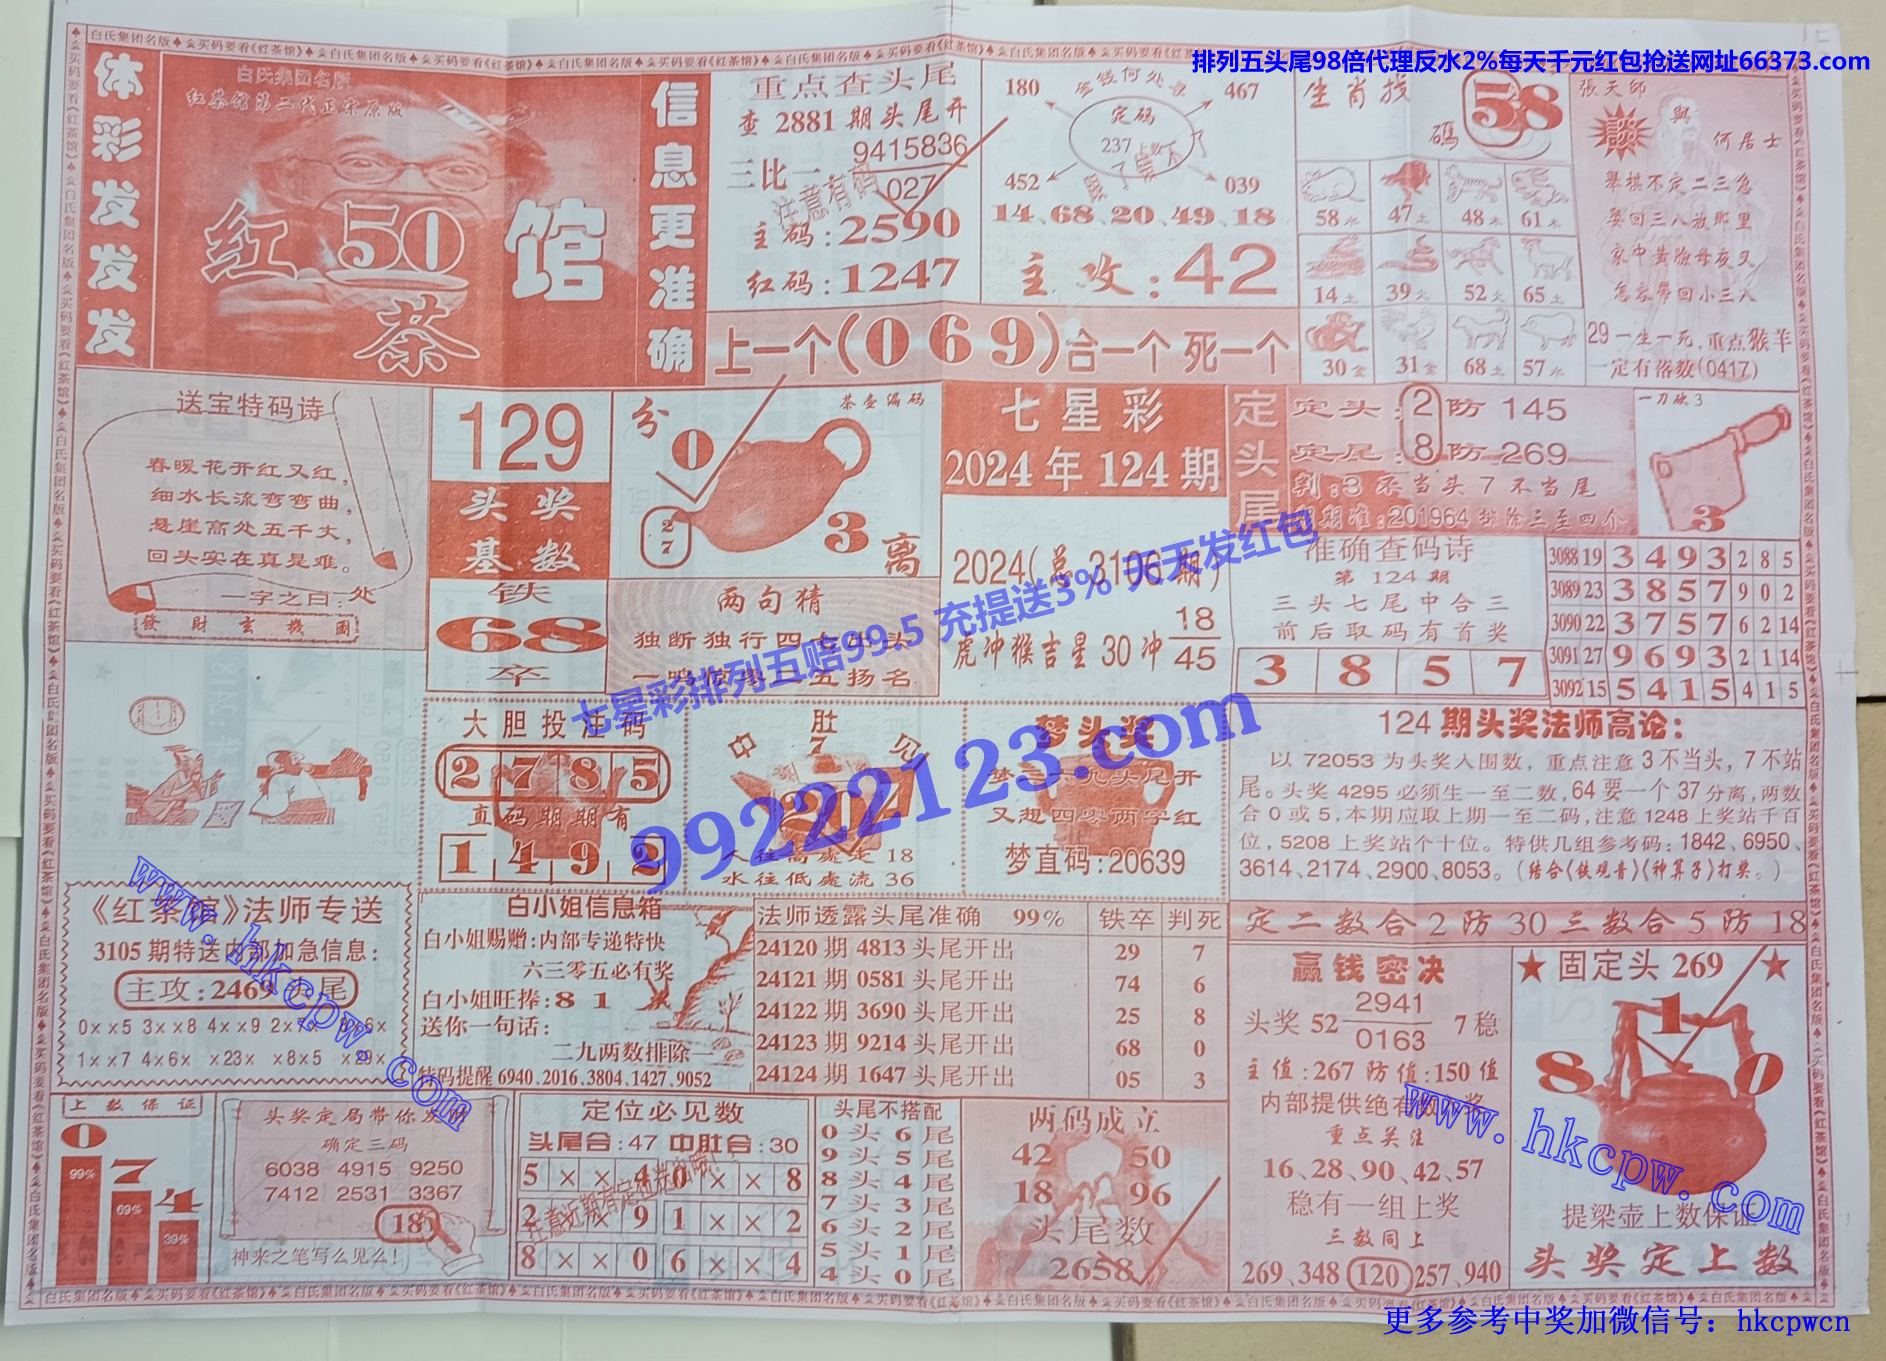 排列五头尾98倍代理反水2%每天千元红包抢送网址66373.com
体彩发发发
白氏集团名版
红茶馆第二代正宗原版
红 50 馆
茶
信息更准确
重点查头尾
查 2881 期头尾开
三比一
9415836
027
注意有码
主码：2590
红码：1247
180 467
定码
237
452 039
14、68、20、49、18
主攻：42
上一个(069)合一个 死一个
生肖找码 58
58水 47土 48木 61木
14土 39火 52火 65土
30金 31金 68土 57水
張天師
與
何居士
舉棋不定二三急
要回三八放那里
29 一生一死，重点猴羊
一定有落数(0417)
送宝特码诗
春暖花开红又红，
细水长流弯弯曲，
悬崖高处五千丈，
回头实在真是难。
一字之曰：处
發財玄機圖
129
头奖
基数
铁
68
卒
分 0
茶壶漏码
27
3 离
两句猜
七星彩
2024年124期
2024(总3106期)
虎冲猴吉星30冲 18
45
定头尾
定头：2防145
定尾：8防269
判：3不当头7不当尾
一刀砍3
3
准确查码诗
第124期
三头七尾中合三
前后取码有首奖
3 8 5 7
3088 19 3 4 9 3 2 8 5
3089 23 3 8 5 7 9 0 2
3090 22 3 7 5 7 6 2 14
3091 27 9 6 9 3 2 1 14
3092 15 5 4 1 5 4 1 5
七星彩排列五赔99.5 充提送3% 天天发红包
99222123.com
大胆投注码
2 7 8 5
直码期期有
1 4 9 2
肚
7
人往高處走 18
水往低處流 36
梦头奖
梦三六九头尾开
又想四零两字红
梦直码：20639
124期头奖法师高论：
以72053为头奖入围数，重点注意3不当头，7不站
尾。头奖4295必须生一至二数，64要一个37分离，两数
合0或5，本期应取上期一至二码，注意1248上奖站千百
位，5208上奖站个十位。特供几组参考码：1842、6950、
3614、2174、2900、8053。(结合《铁观音》《神算子》打奖。)
《红茶馆》法师专送
3105期特送内部加急信息：
主攻：2469 尾
白小姐信息箱
白小姐赐赠：内部专递特快
六三零五必有奖
白小姐旺捧：8 1
送你一句话：
二九两数排除一
特码提醒 6940、2016、3804、1427、9052
法师透露头尾准确 99% 铁卒 判死
24120期4813头尾开出 29 7
24121期0581头尾开出 74 6
24122期3690头尾开出 25 8
24123期9214头尾开出 68 0
24124期1647头尾开出 05 3
定二数合2防30三数合5防18
赢钱密决
头奖52 2941 7稳
0163
主值：267 防值：150值
重点关注
16、28、90、42、57
稳有一组上奖
三数同上
269、348(120)257、940
★固定头269★
1
8 0
提梁壶上数保证
头奖定上数
www.hkcpw.com
www.hkcpw.com
上数保证
0 7 4
99% 69% 39%
头奖定局带你发
确定三码
6038 4915 9250
7412 2531 3367
18
神来之笔写么见么！
定位必见数
头尾合：47 中肚合：30
5 × × 4 0 × × 8
2 × × 9 1 × × 2
8 × × 0 6 × × 4
头尾不搭配
0头6尾
9头5尾
8头4尾
7头3尾
6头2尾
5头1尾
4头0尾
两码成立
42 50
18 96
头尾数
2658
更多参考中奖加微信号：hkcpwcn